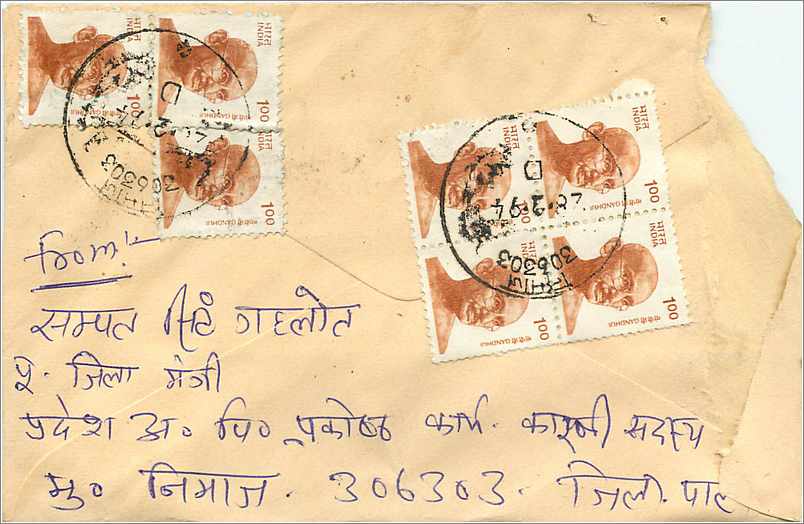 भारत INDIA 100 गांधी GANDHI
भारत INDIA 100 गांधी GANDHI
100 गांधी GANDHI
भारत INDIA 100 गांधी GANDHI
भारत INDIA 100 गांधी GANDHI
भारत INDIA 100 गांधी GANDHI
भारत INDIA 100 गांधी GANDHI
D
306303
D
28.2.94
306303
from:-
सम्पत सिंह गहलोत
पु. जिला मंत्री
प्रदेश अ० पि० प्रकोष्ठ कार्य. कारणी सदस्य
मु० निमाज. 306303. जिला. पाल